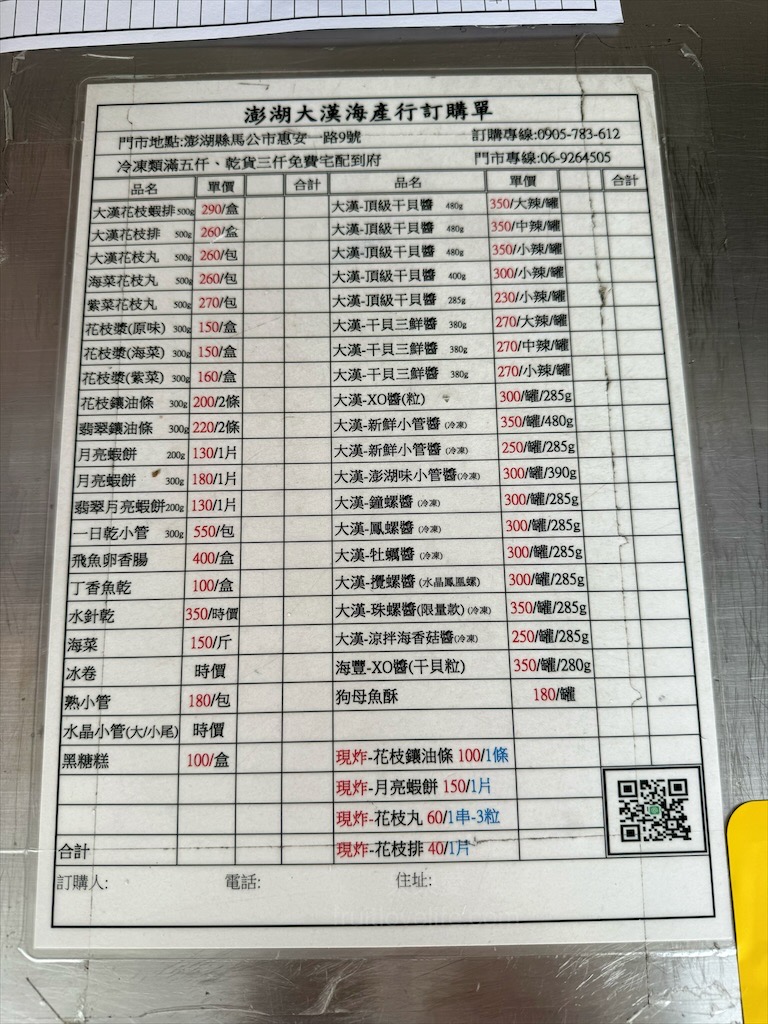 澎湖大漢海產行訂購單
門市地點:澎湖縣馬公市惠安一路9號 訂購專線:0905-783-612
冷凍類滿五仟、乾貨三仟免費宅配到府 門市專線:06-9264505
品名 單價 合計 品名 單價 合計
大漢花枝蝦排 500g 290/盒 大漢-頂級干貝醬 480g 350/大辣/罐
大漢花枝排 500g 260/盒 大漢-頂級干貝醬 480g 350/中辣/罐
大漢花枝丸 500g 260/包 大漢-頂級干貝醬 480g 350/小辣/罐
海菜花枝丸 500g 260/包 大漢-頂級干貝醬 400g 300/小辣/罐
紫菜花枝丸 500g 270/包 大漢-頂級干貝醬 285g 230/小辣/罐
花枝漿(原味) 300g 150/盒 大漢-干貝三鮮醬 380g 270/大辣/罐
花枝漿(海菜) 300g 150/盒 大漢-干貝三鮮醬 380g 270/中辣/罐
花枝漿(紫菜) 300g 160/盒 大漢-干貝三鮮醬 380g 270/小辣/罐
花枝鑲油條 300g 200/2條 大漢-XO醬(粒) 300/罐/285g
翡翠鑲油條 300g 220/2條 大漢-新鮮小管醬(冷凍) 350/罐/480g
月亮蝦餅 200g 130/1片 大漢-新鮮小管醬(冷凍) 250/罐/285g
月亮蝦餅 300g 180/1片 大漢-澎湖味小管醬(冷凍) 300/罐/390g
翡翠月亮蝦餅200g 130/1片 大漢-鐘螺醬(冷凍) 300/罐/285g
一日乾小管 300g 550/包 大漢-鳳螺醬(冷凍) 300/罐/285g
飛魚卵香腸 400/盒 大漢-牡蠣醬(冷凍) 300/罐/285g
丁香魚乾 100/盒 大漢-攪螺醬(水晶鳳凰螺) 300/罐/285g
水針乾 350/時價 大漢-珠螺醬(限量款)(冷凍) 350/罐/285g
海菜 150/斤 大漢-涼拌海香菇醬(冷凍) 250/罐/285g
冰卷 時價 海豐-XO醬(干貝粒) 350/罐/280g
熟小管 180/包 狗母魚酥 180/罐
水晶小管(大/小尾) 時價
黑糖糕 100/盒 現炸-花枝鑲油條 100/1條
現炸-月亮蝦餅 150/1片
現炸-花枝丸 60/1串-3粒
合計 現炸-花枝排 40/1片
訂購人: 電話: 住址: